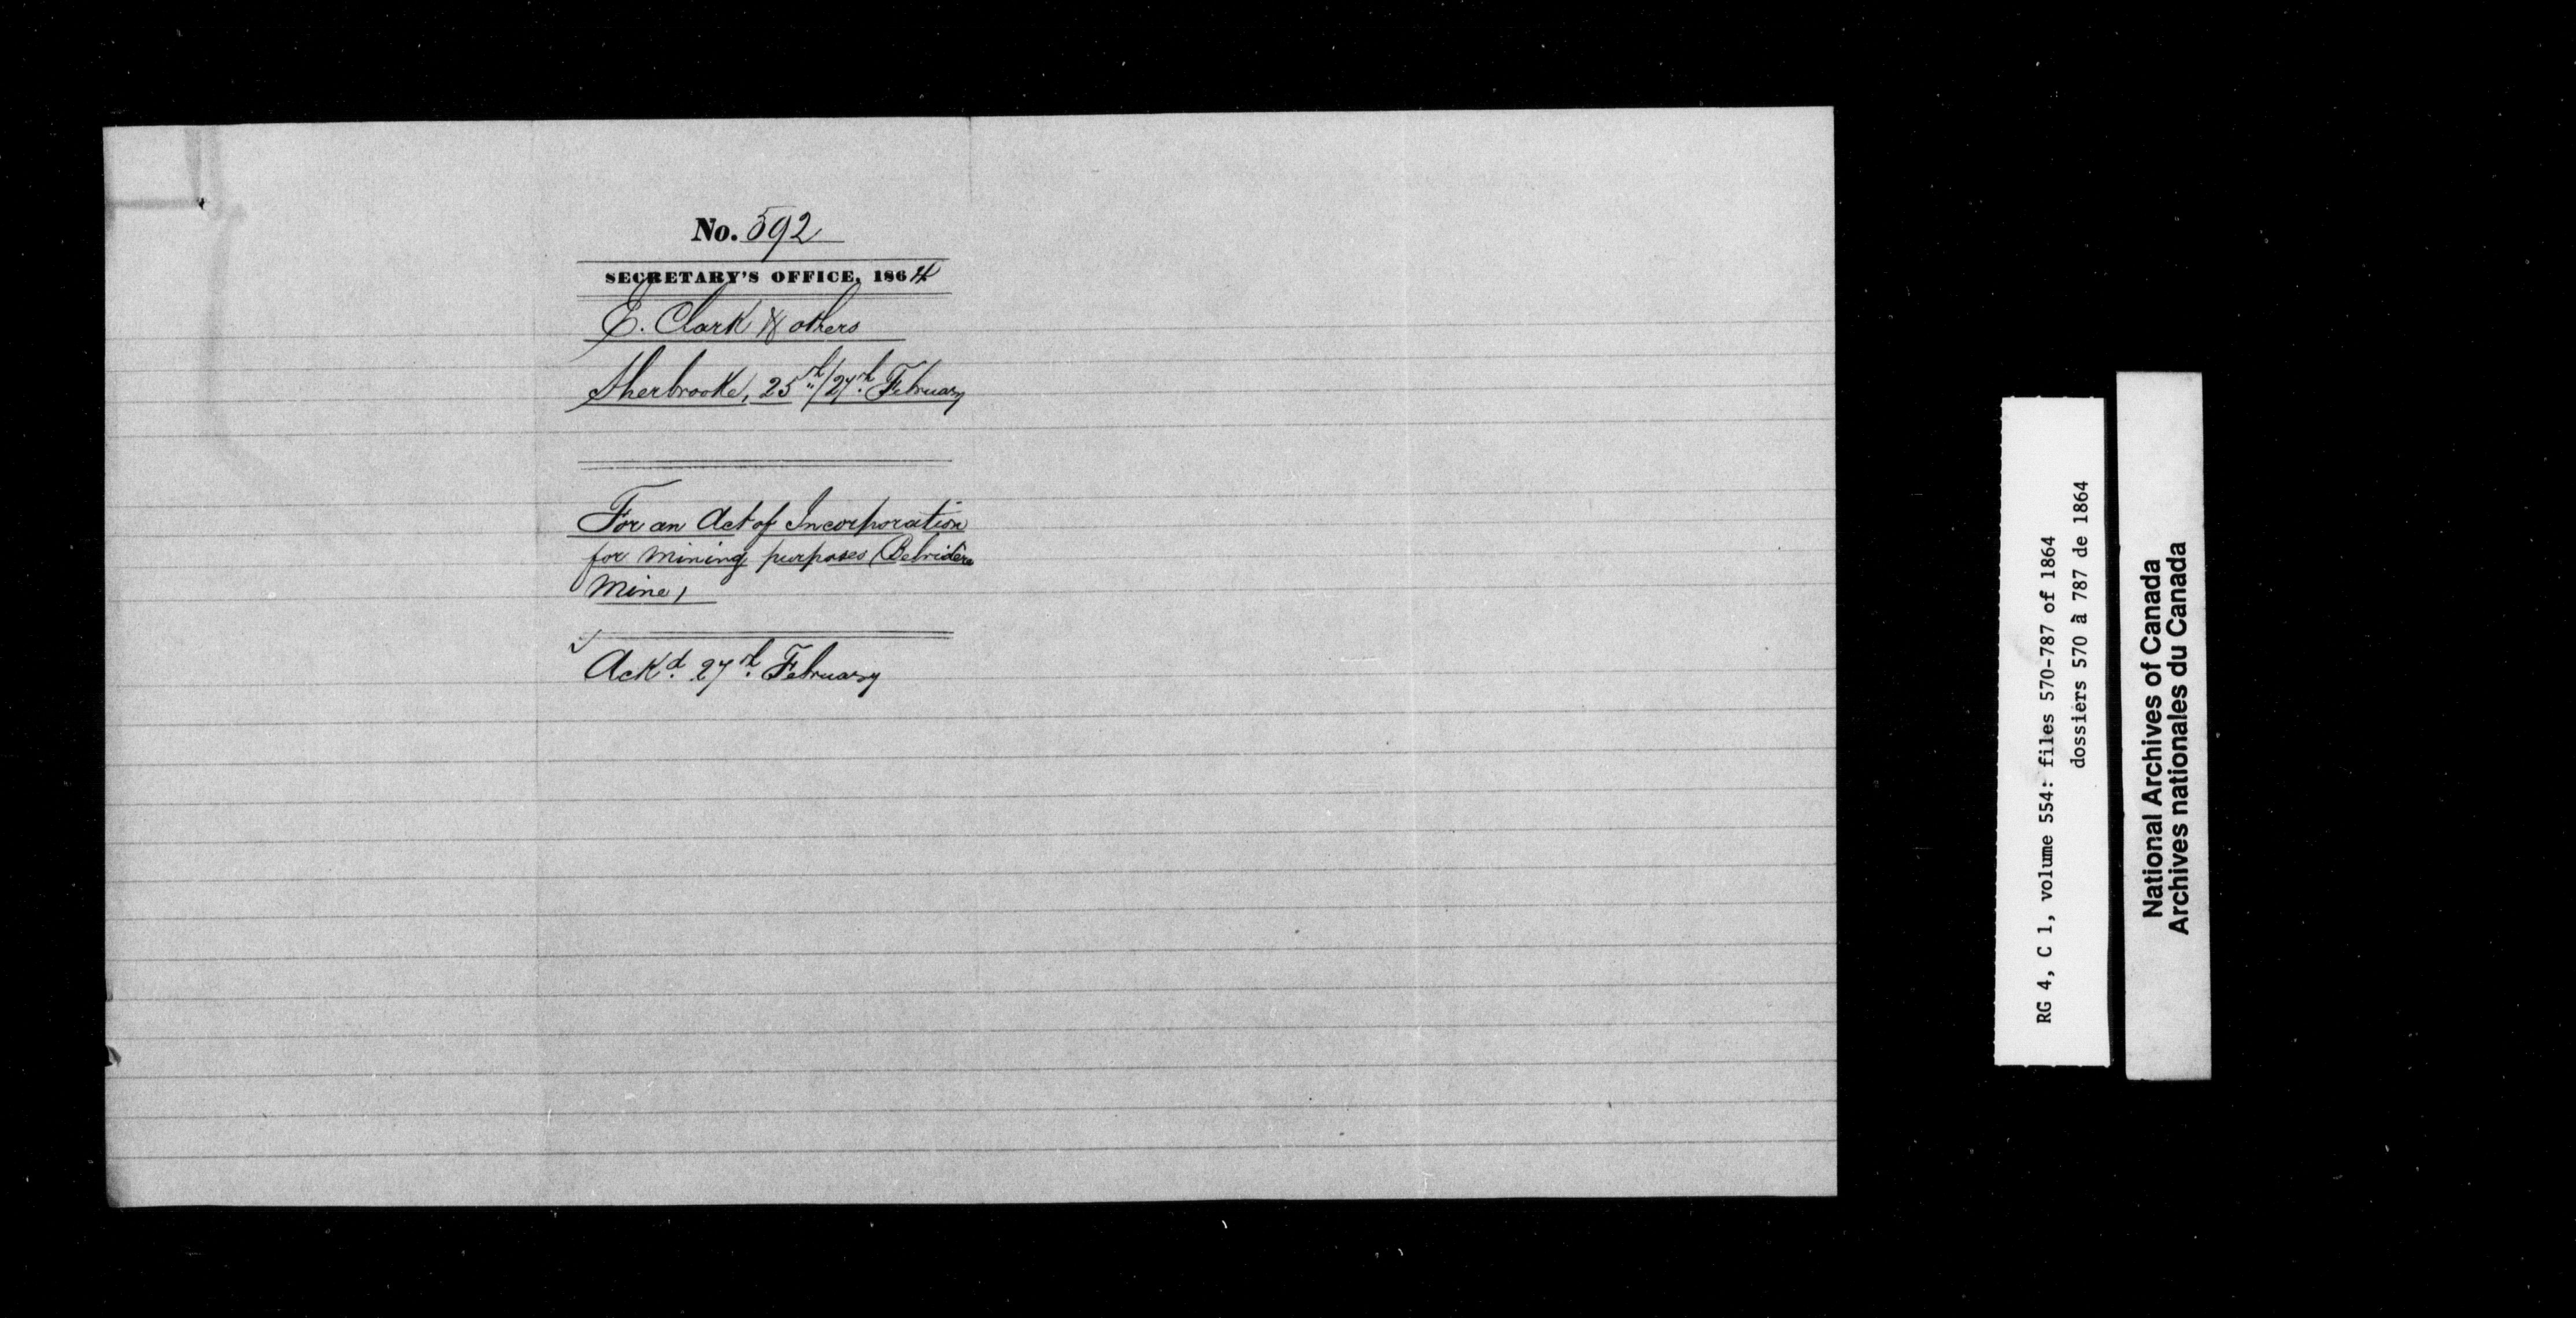 No. 592
SECRETARY'S OFFICE, 1864
E. Clark & others
Sherbrooke, 25th/27th February
For an Act of Incorporation
for mining purposes (Belvidere
Mine)
Ackd. 27th February
RG 4, C 1, volume 554: files 570-787 of 1864
dossiers 570 à 787 de 1864
National Archives of Canada
Archives nationales du Canada